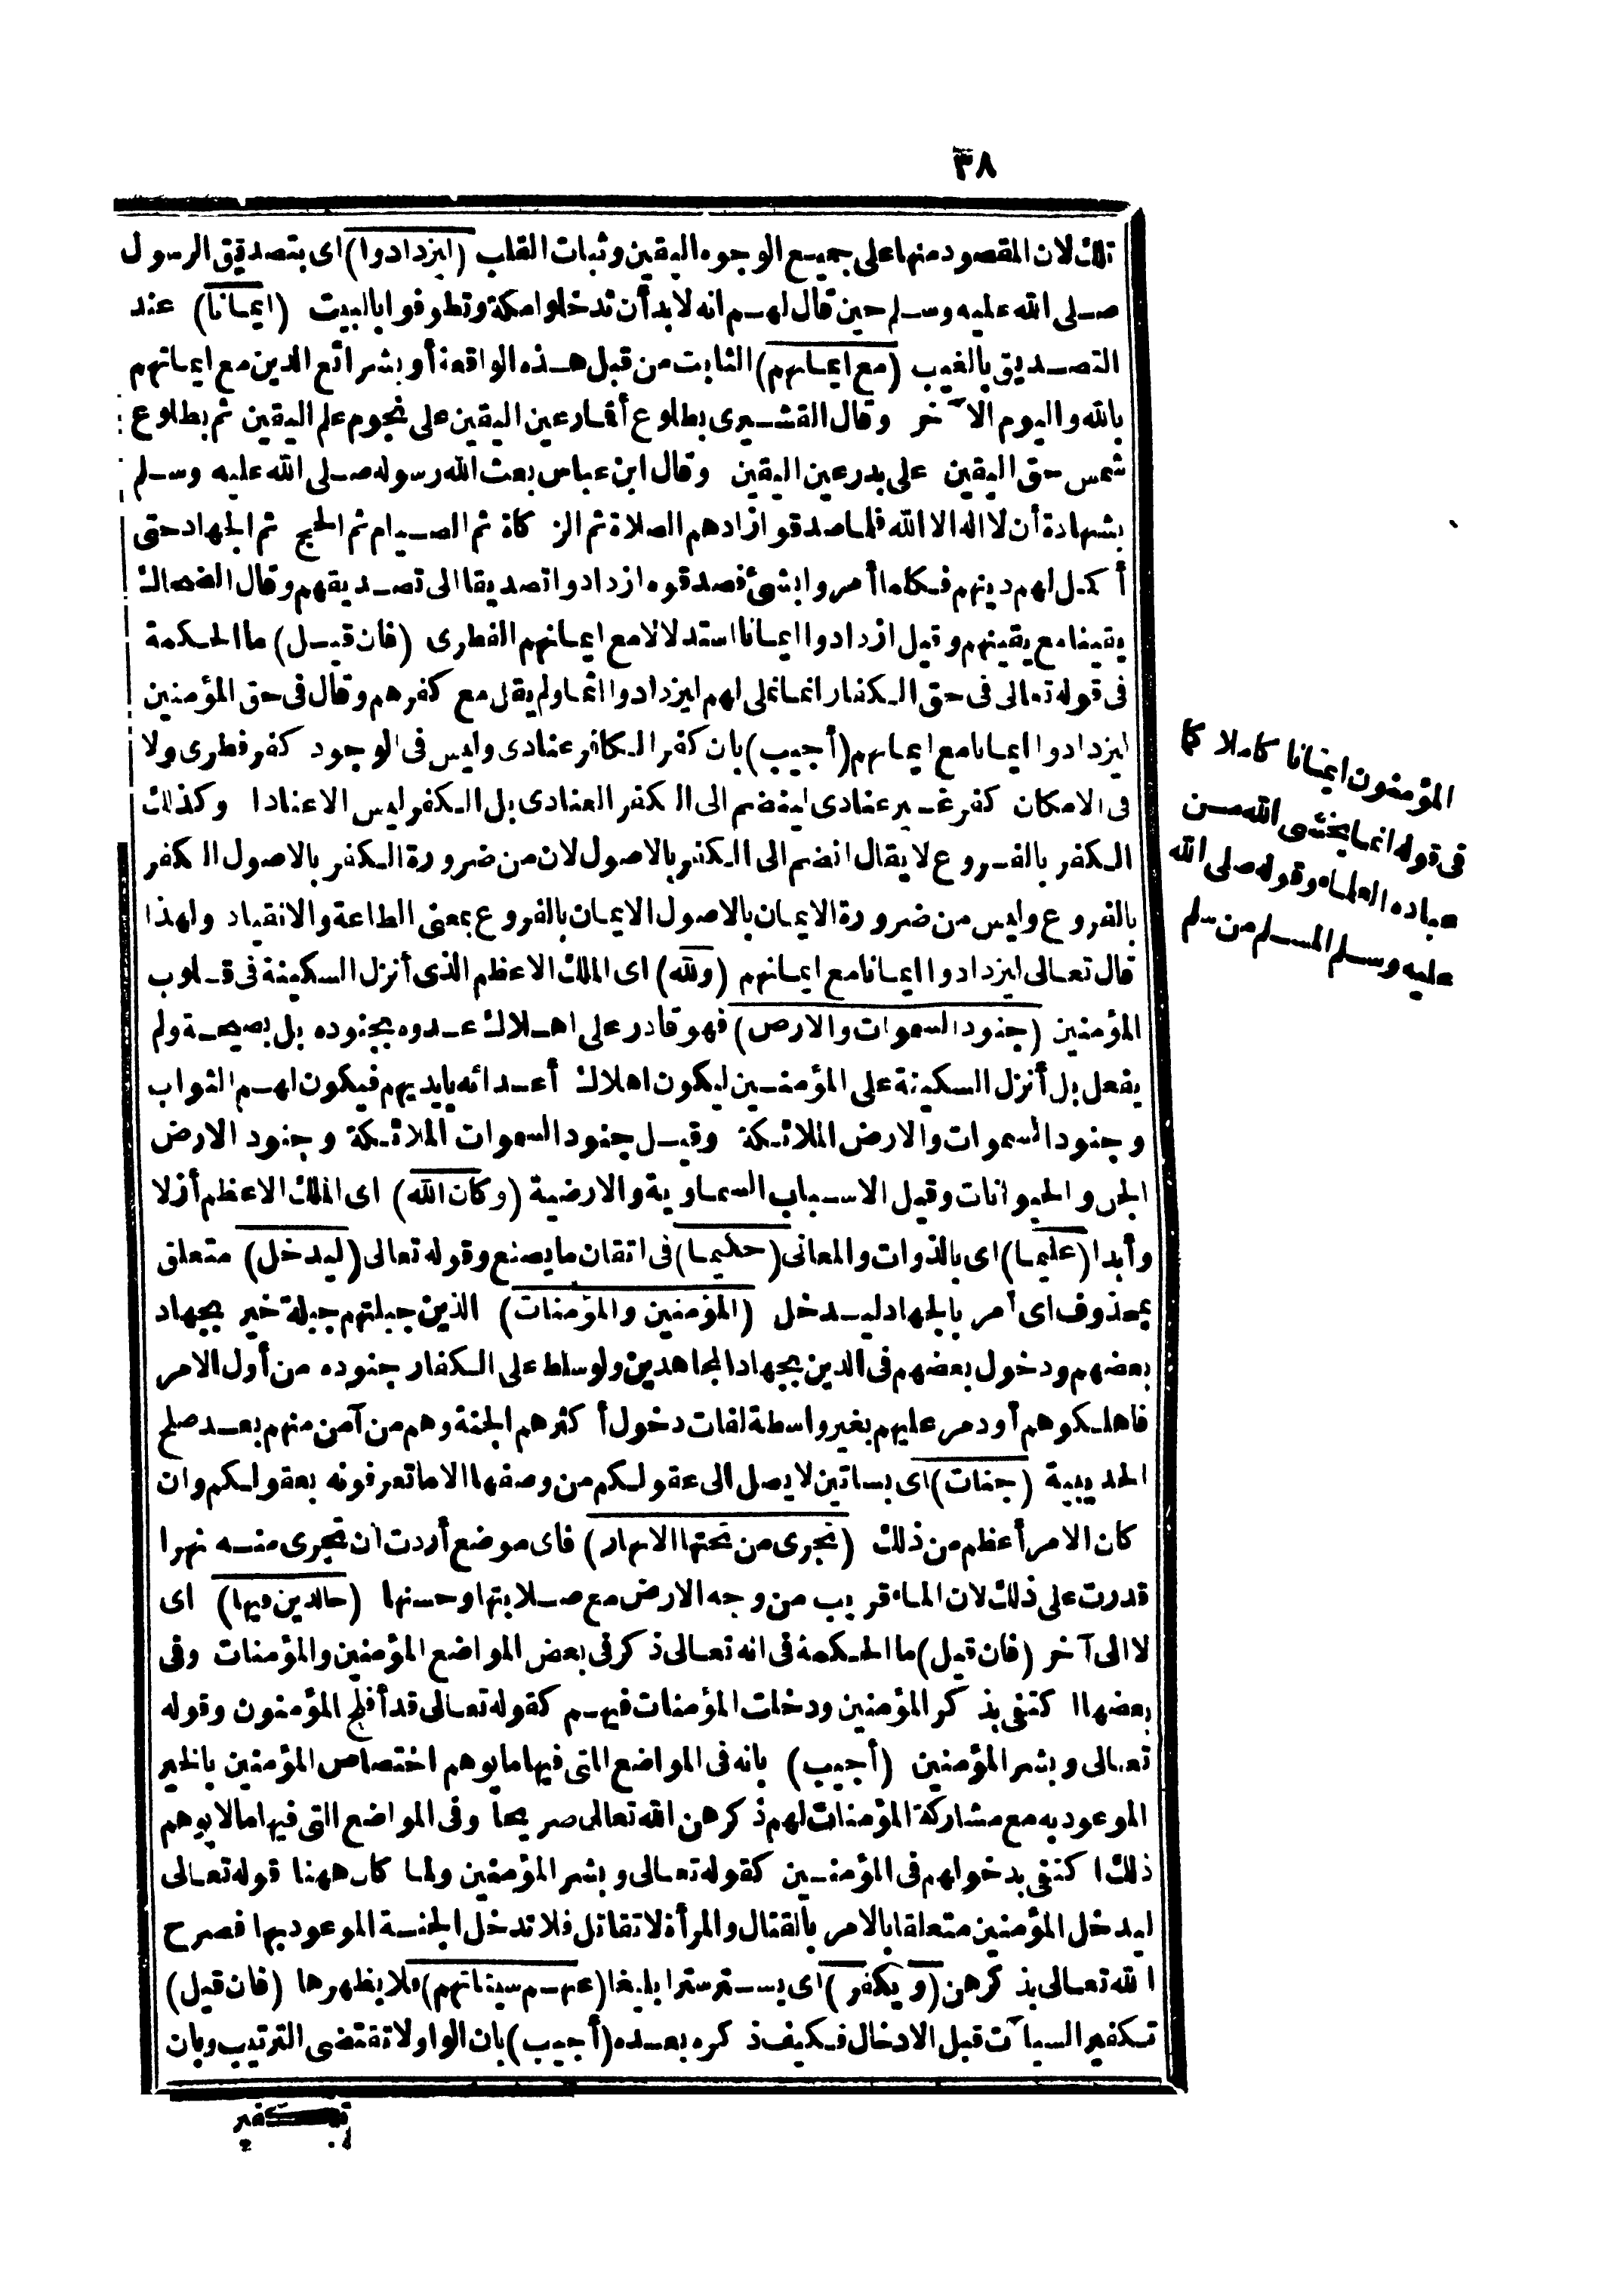 ٣٨
تلك لان المقصود منها على جميع الوجوه اليقين وثبات القلب (ليزدادوا) اى بتصديق الرسول
صلى الله عليه وسلم حين قال لهم انه لا بد أن تدخلوا مكة وتطوفوا بالبيت (ايمانا) عند
التصديق بالغيب (مع ايمانهم) الثابت من قبل هذه الواقعة أو بشرائع الدين مع ايمانهم
بالله واليوم الآخر وقال القشيرى بطلوع أقمار عين اليقين على نجوم علم اليقين ثم بطلوع
شمس حق اليقين على بدر عين اليقين وقال ابن عباس بعث الله رسوله صلى الله عليه وسلم
بشهادة أن لا اله الا الله فلما صدقوا زادهم الصلاة ثم الزكاة ثم الصيام ثم الحج ثم الجهاد حتى
أكمل لهم دينهم فكلما أمروا بشئ فصدقوه ازدادوا تصديقا الى تصديقهم وقال الضحاك
يقينا مع يقينهم وقيل ازدادوا ايمانا استدلالا مع ايمانهم الفطرى (فان قيل) ما الحكمة
فى قوله تعالى فى حق الكفار انما نملى لهم ليزدادوا اثما ولم يقل مع كفرهم وقال فى حق المؤمنين
ليزدادوا ايمانا مع ايمانهم (أجيب) بان كفر الكافر عنادى وليس فى الوجود كفر فطرى ولا
فى الامكان كفر غير عنادى لينضم الى الكفر العنادى بل الكفر ليس الا عنادا وكذلك
الكفر بالفروع لا يقال انضم الى الكفر بالاصول لان من ضرورة الكفر بالاصول الكفر
بالفروع وليس من ضرورة الايمان بالاصول الايمان بالفروع بمعنى الطاعة والانقياد ولهذا
قال تعالى ليزدادوا ايمانا مع ايمانهم (ولله) اى الملك الاعظم الذى أنزل السكينة فى قلوب
المؤمنين (جنود السموات والارض) فهو قادر على اهلاك عدوه بجنوده بل بصيحة ولم
يفعل بل أنزل السكينة على المؤمنين ليكون اهلاك أعدائه بايديهم فيكون لهم الثواب
وجنود السموات والارض الملائكة وقيل جنود السموات الملائكة وجنود الارض
الجن والحيوانات وقيل الاسباب السماوية والارضية (وكان الله) اى الملك الاعظم أزلا
وأبدا (عليما) اى بالذوات والمعانى (حكيما) فى اتقان ما يصنع وقوله تعالى (ليدخل) متعلق
بمحذوف اى أمر بالجهاد ليدخل (المؤمنين والمؤمنات) الذين جبلتهم جبلة خير بجهاد
بعضهم ودخول بعضهم فى الدين بجهاد المجاهدين ولو سلط على الكفار جنوده من أول الامر
فاهلكوهم أو دمر عليهم بغير واسطة لفات دخول أكثرهم الجنة وهم من آمن منهم بعد صلح
الحديبية (جنات) اى بساتين لا يصل الى عقولكم من وصفها الا ما تعرفونه بعقولكم وان
كان الامر أعظم من ذلك (تجرى من تحتها الانهار) فاى موضع أردت ان تجرى منه نهرا
قدرت على ذلك لان الماء قريب من وجه الارض مع صلابتها وحسنها (خالدين فيها) اى
لا الى آخر (فان قيل) ما الحكمة فى انه تعالى ذكر فى بعض المواضع المؤمنين والمؤمنات وفى
بعضها اكتفى بذكر المؤمنين ودخلت المؤمنات فيهم كقوله تعالى قد أفلح المؤمنون وقوله
تعالى وبشر المؤمنين (أجيب) بانه فى المواضع التى فيها ما يوهم اختصاص المؤمنين بالخير
الموعود به مع مشاركة المؤمنات لهم ذكرهن الله تعالى صريحا وفى المواضع التى فيها ما لا يوهم
ذلك اكتفى بدخولهم فى المؤمنين كقوله تعالى وبشر المؤمنين ولما كان ههنا قوله تعالى
ليدخل المؤمنين متعلقا بالامر بالقتال والمرأة لا تقاتل فلا تدخل الجنة الموعود بها فصرح
الله تعالى بذكرهن (ويكفر) اى يستر سترا بليغا (عنهم سيئاتهم) فلا يظهرها (فان قيل)
تكفير السيآت قبل الادخال فكيف ذكره بعده (أجيب) بان الواو لا تقتضى الترتيب وبان
تكفير
المؤمنون ايمانا كاملا كما
فى قوله انما يخشى الله من
عباده العلماء وقوله صلى الله
عليه وسلم المسلم من سلم